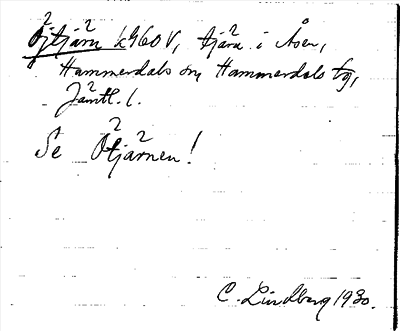 Öjtjärn k460 V, tjärn i Åsen,
Hammerdals sn, Hammerdals tg,
Jämtl. l.
Se Ötjärnen!
C. Lindberg 1930.